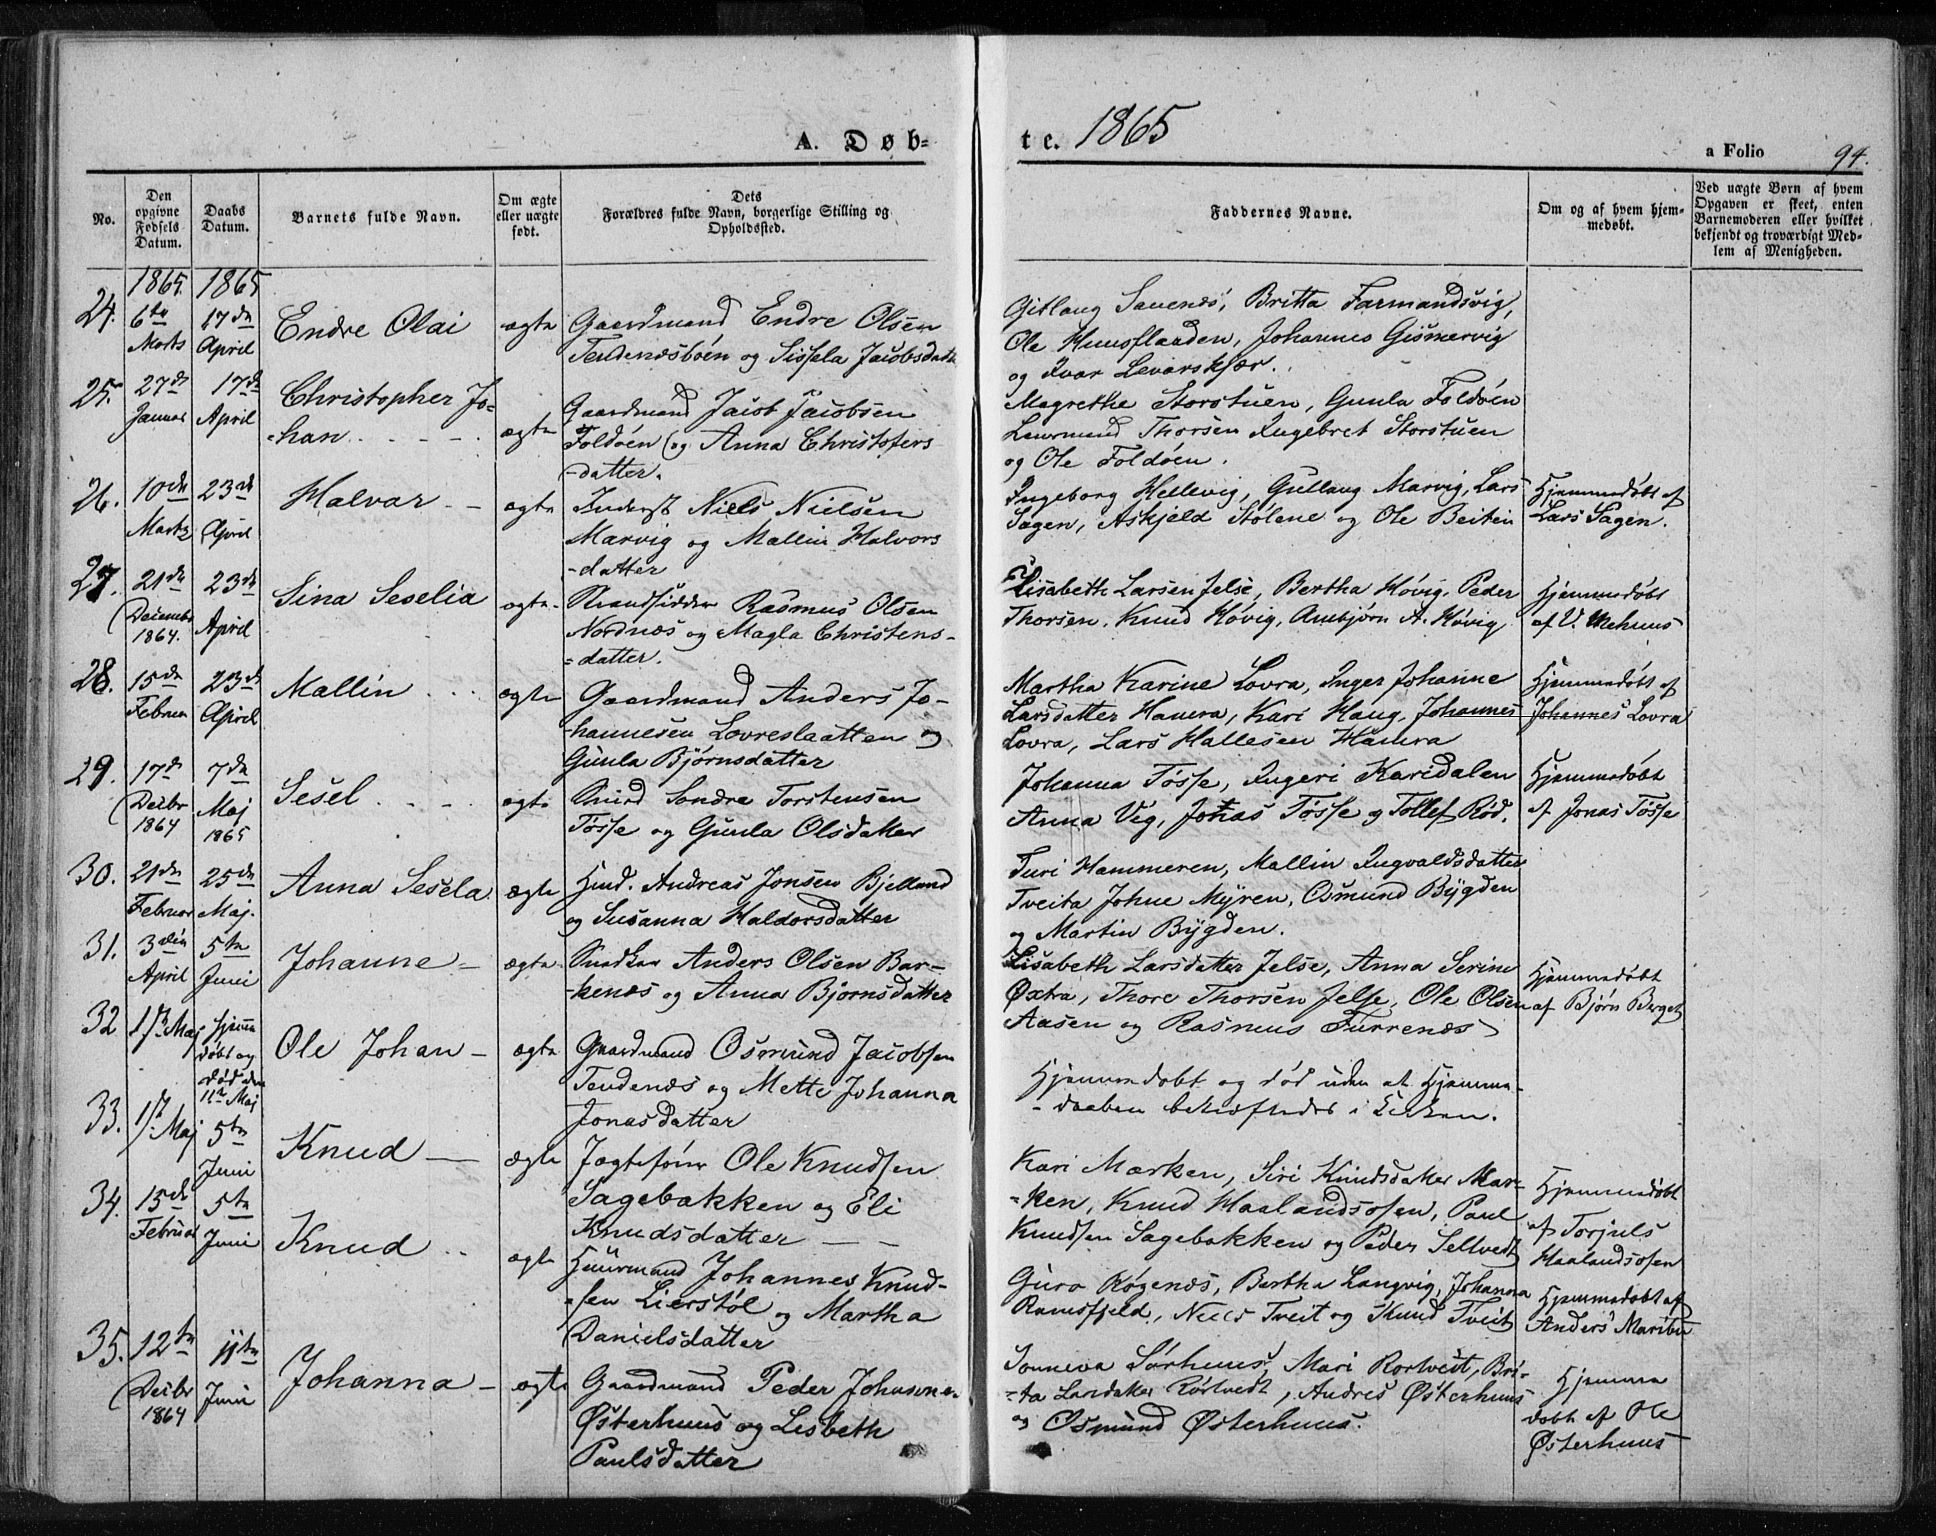 A. Døb-
te. 1865
a Folio 94.
No.
Den opgivne Fødsels Datum.
Daabs Datum.
Barnets fulde Navn.
Om ægte eller uægte født.
Dets Forældres fulde Navn, borgerlige Stilling og Opholdssted.
Faddernes Navne.
Om og af hvem hjemmedøbt.
Ved uægte Børn af hvem Opgaven er skeet, enten Barnemoderen eller hvilket bekjendt og troværdigt Medlem af Menigheden.
1865. 1865
24. 6te Marts 17de April Endre Olai ægte
Gaardmand Endre Olsen
Tendenæsbøen og Sissela Jacobsdatt
Gitlaug Sauenæs, Britta Farmandsvig,
Ole Johannes Gismervig
og Ivar Levarskjær.
25. 27de Januar 17de April Christopher Jo-
-han ægte
Gaardmand Jacob Jacobsen
Foldøen og Anna Christofers
-datter.
Magrethe Storstuen, Gunla Foldøen
Thorsen Ingebret Storstuen
og Ole Foldøen.
26. 10de Marts 23de April Halvar ægte
Inderst Niels Nielsen
Marvig og Mallin Halvors
-datter
Ingeborg Hellevig, Gullaug Marvig, Lars
Sagen, Askjeld Stølene og Ole Beitin
Hjemmedøbt af
Lars Sagen.
27. 21de Decembr 1864. 23de April Sina Seselia ægte
Strandsidder Rasmus Olsen
Nordnæs og Magla Christens-
-datter.
Lisabeth Larsen Jelse, Bertha Høvig, Peder
Thorsen, Knud Høvig, Ambjørn A. Høvig
Hjemmedøbt
af V. Mehuus
28. 15de Februar 23de April Mallin ægte
Gaardmand Anders Jo-
-hannesen Lovreslaatten og
Gunla Bjørnsdatter
Martha Karine Lovra, Inger Johanne
Larsdatter Hamra, Kari Haug, Johannes
Lovra, Lars Hallesen Hamra
Hjemmedøbt af
Johannes Lovra
29. 17de Decbr 1864 7de Maj 1865 Sesel ægte
Sondre Torstensen
Tøsse og Gunla Olsdatter
Johanna Tøsse, Ingeri Karidalen
Anna Veg, Jonas Tøsse og Tollef Rød.
Hjemmedøbt
af Jonas Tøsse
30. 21de Februar 25de Maj. Anna Sesela ægte
Husmd. Andreas Jonsen Bjelland
og Susanna Haldorsdatter
Turi Hammeren, Mallin Ingvaldsdatter
Tveita Johne Myren, Osmund Bygden
og Martin Bygden.
31. 3die April 5te Juni Johanne ægte
Snedker Anders Olsen Bar-
-kenæs og Anna Bjørnsdatter
Lisabeth Larsdatter Jelse, Anna Serine
Øxtra, Thore Thorsen Jelse, Ole Olsen
Aasen og Rasmus Furrenæs
Hjemmedøbt
af Bjørn Berget
32 Maj Hjemmdøbt og død den 11te Maj Ole Johan ægte
Gaardmand Osmund Jacobsen
Tendenæs og Mette Johanna
Jonasdatter
Hjemmedøbt og død uden at Hjemme-
-daaben bekræftedes i Kirken.
33. Maj 5te Juni Knud ægte
Jagtefører Ole Knudsen
Sagebakken og Eli
Knudsdatter
Kari Marken, Siri Knudsdatter Mar-
-ken, Knud Haalandsosen, Paul
Knudsen Sagebakken og Peder Selvedt
Hjemmedøbt
af Torjuls
Haalandsosen
34. 15de Februar 5te Juni Knud ægte
Huusmand Johannes Knud-
-sen Lierstøl og Martha
Danielsdatter
Guro Røgenæs, Bertha Langvig, Johanna
Ramsfjeld, Niels Tveit og Knud Tveit
Hjemmedøbt af
Anders Maribu
35. 12te Decbr 1864 11te Juni Johanna ægte
Gaardmand Peder Johnsen
Østerhuus og Lisbeth
Paulsdatter
Sonneva Sørhuus, Mari Rørtvedt, Bri-
-ta Larsdatter Rørtvedt, Andres Østerhuus
og Osmund Østerhuus.
Hjemme
døbt af Ole
Østerhuus